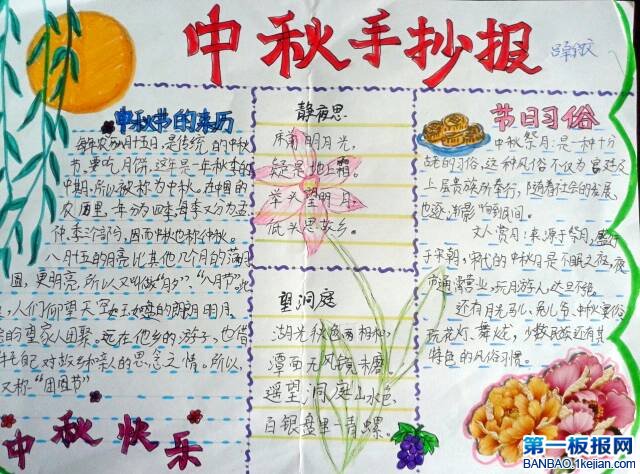 中秋手抄报
中秋节的来历
每年农历八月十五日,是传统的中秋
节,要吃月饼,这年是一年秋季的
中期,所以被称为中秋。在中国的
农历里,年分为四季,每季又分为孟、
仲、季三个部份,因而中秋也称仲秋。
八月十五的月亮比其他几个月的满月
圆,更明亮,所以又叫做"月夕","八月节"。此
,人们仰望天空如玉如盘的朗朗明月,
会的望家人团聚。远在他乡的游子,也借
自己对故乡和亲人的思念之情。所以,
又称"团圆节"
中秋快乐
静夜思
床前明月光,
疑是地上霜。
举头望明月,
低头思故乡。
望洞庭
湖光秋色两相和,
潭面无风镜未磨
遥望洞庭山水色,
百银盘里一青螺。
节日习俗
中秋祭月:是一种十分
古老的习俗,这种风俗不仅为宫廷及
上层贵族所奉行,随着社会的发展,
也逐渐影响到民间。
文人赏月:来源于祭月,盛行
于宋朝,宋代的中秋月是不眠之夜,夜
市通宵营业,玩月游人,达旦不绝。
还有月光马儿、兔儿爷、中秋宴俗、
玩花灯、舞火龙,少数民族还有其
特色的风俗习惯。
第一板报网
BANBAO.1kejian.com